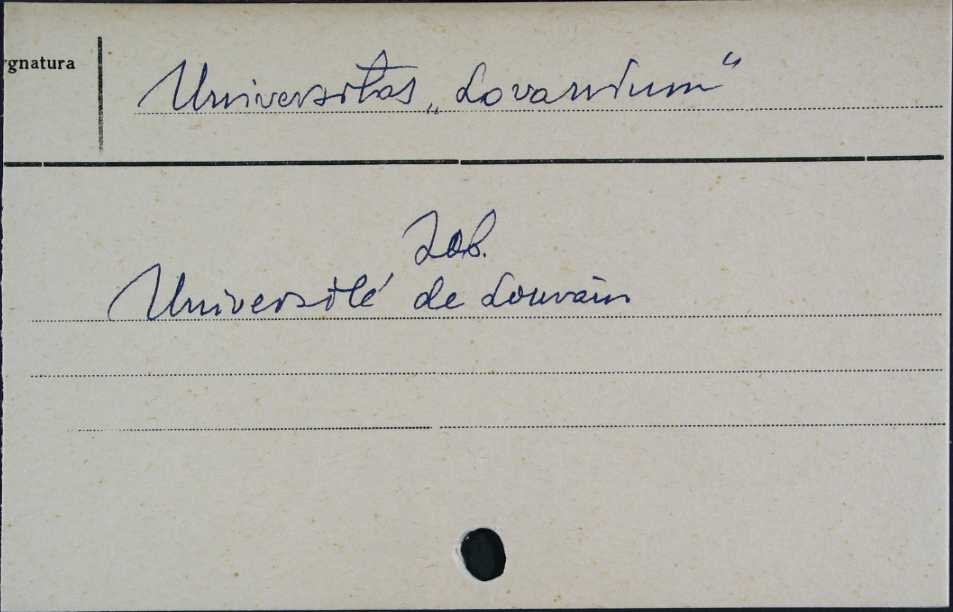 ygnatura
Universitas „Lovanium"
Zob.
Université de Louvain